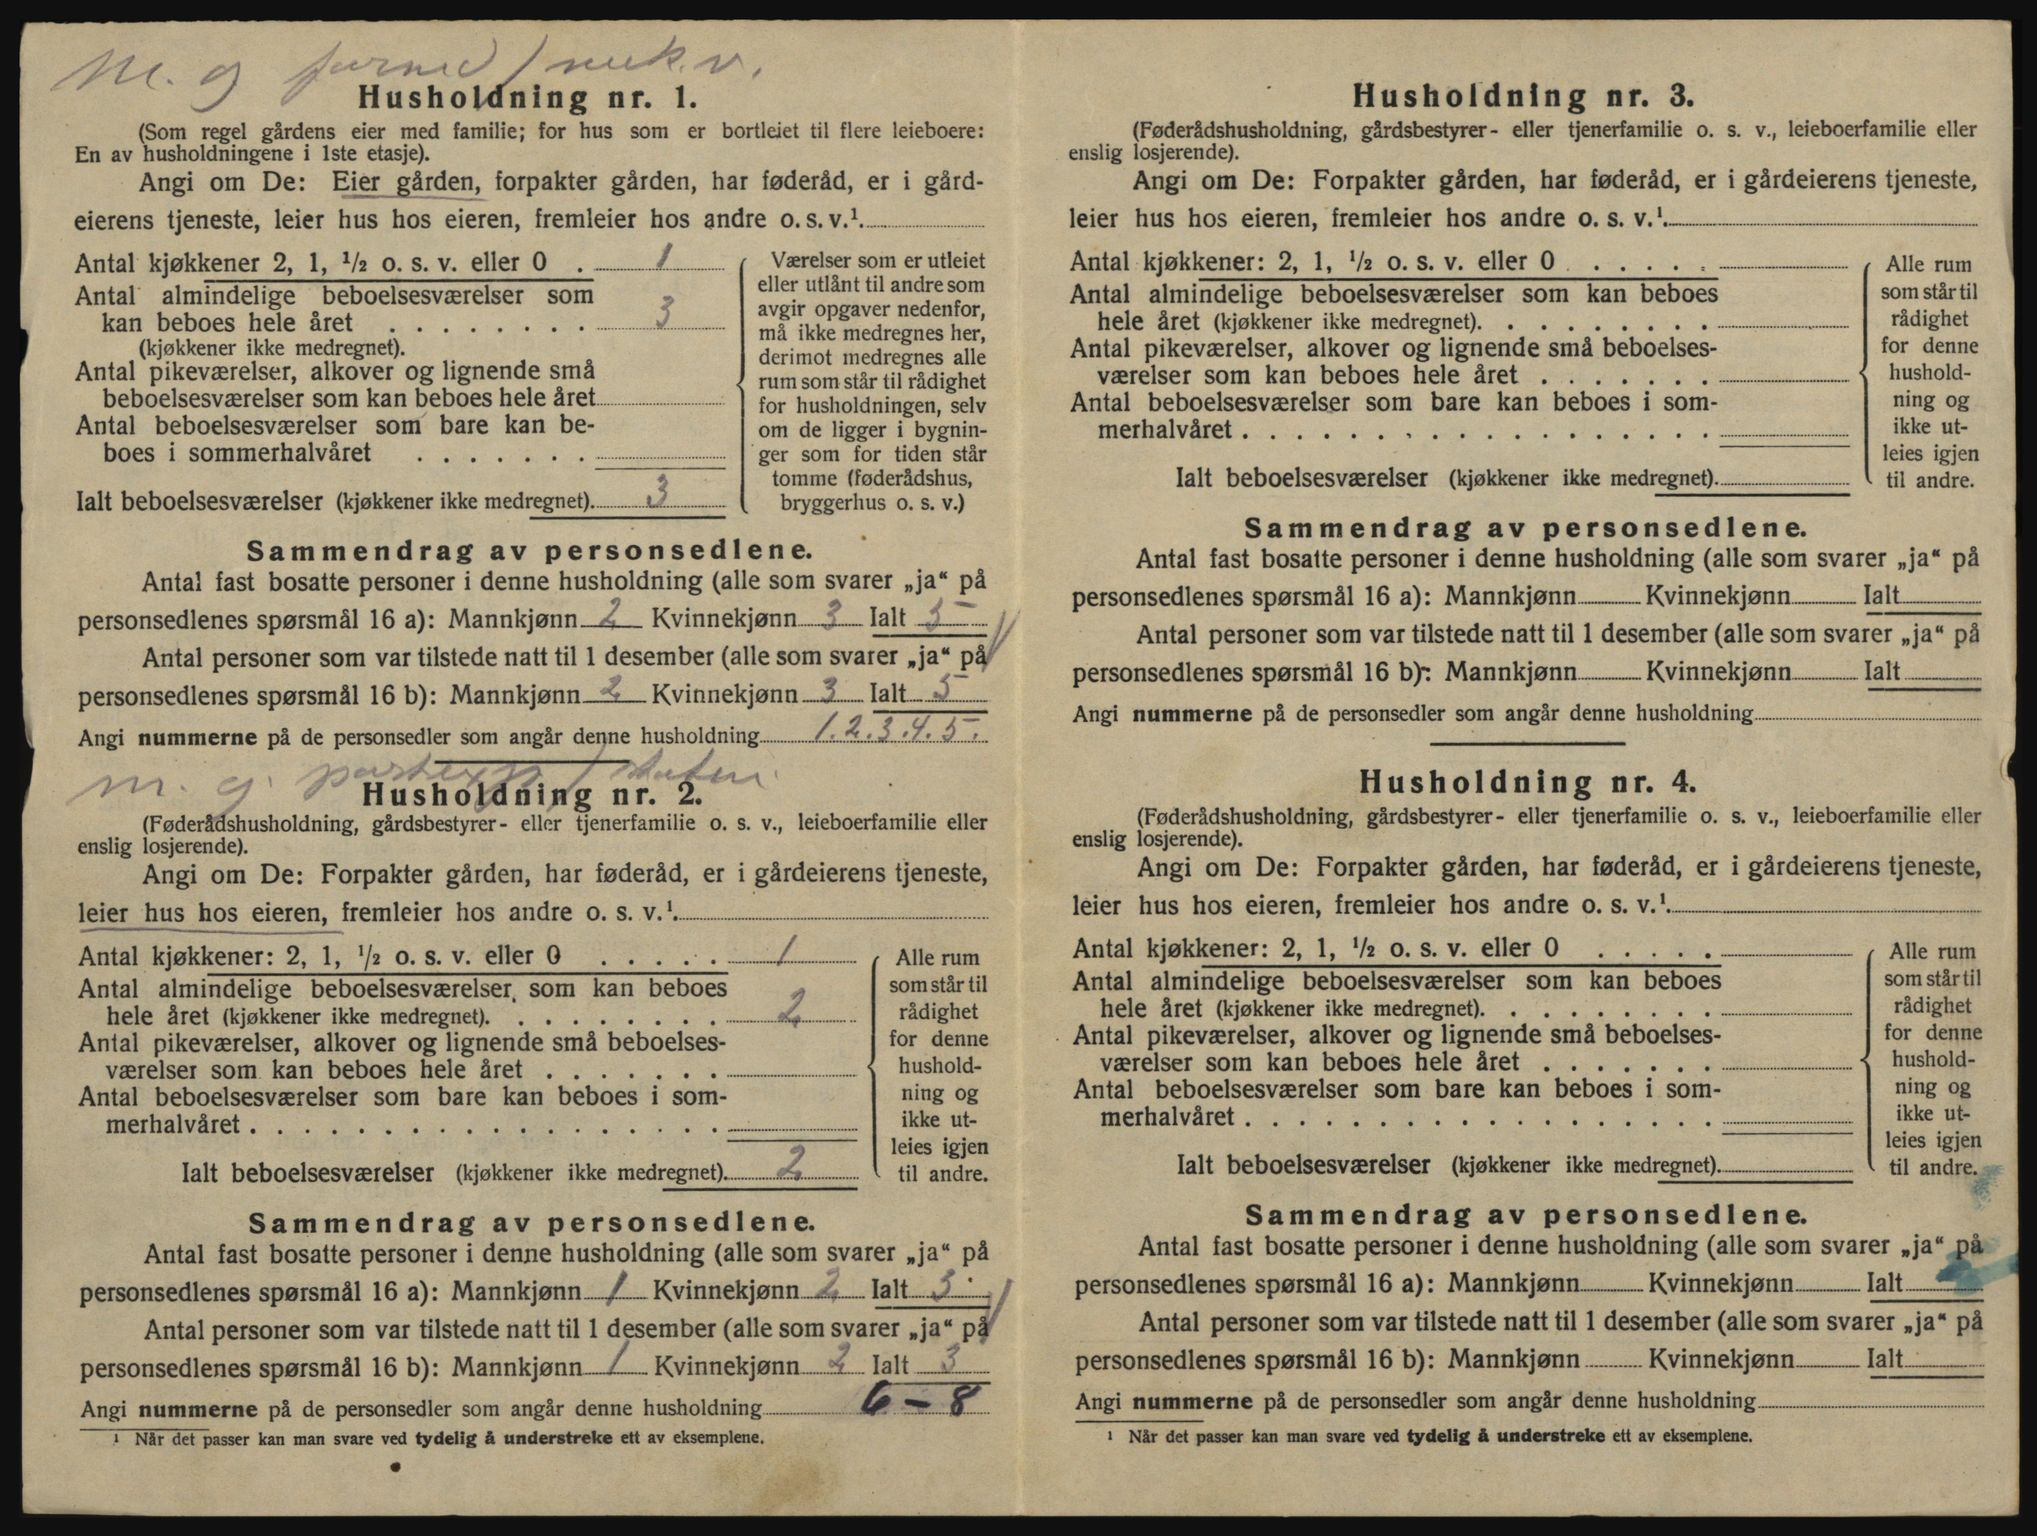 M. g
Husholdning nr. 1.
(Som regel gårdens eier med familie; for hus som er bortleiet til flere leieboere:
En av husholdningene i 1ste etasje).
Angi om De: Eier gården, forpakter gården, har føderåd, er i gård-
eierens tjeneste, leier hus hos eieren, fremleier hos andre o. s. v.¹.
Antal kjøkkener 2, 1, ½ o. s. v. eller 0 . 1
Antal almindelige beboelsesværelser som
kan beboes hele året . . . . . . . . 3
(kjøkkener ikke medregnet).
Antal pikeværelser, alkover og lignende små
beboelsesværelser som kan beboes hele året
Antal beboelsesværelser som bare kan be-
boes i sommerhalvåret . . . . . . .
Ialt beboelsesværelser (kjøkkener ikke medregnet). 3
Værelser som er utleiet
eller utlånt til andre som
avgir opgaver nedenfor,
må ikke medregnes her,
derimot medregnes alle
rum som står til rådighet
for husholdningen, selv
om de ligger i bygnin-
ger som for tiden står
tomme (føderådshus,
bryggerhus o. s. v.)
Sammendrag av personsedlene.
Antal fast bosatte personer i denne husholdning (alle som svarer „ja“ på
personsedlenes spørsmål 16 a): Mannkjønn 2 Kvinnekjønn 3 Ialt 5
Antal personer som var tilstede natt til 1 desember (alle som svarer „ja“ på
personsedlenes spørsmål 16 b): Mannkjønn 2 Kvinnekjønn 3 Ialt 5
Angi nummerne på de personsedler som angår denne husholdning 1.2.3.4.5.
m. g.
Husholdning nr. 2.
(Føderådshusholdning, gårdsbestyrer- eller tjenerfamilie o. s. v., leieboerfamilie eller
enslig losjerende).
Angi om De: Forpakter gården, har føderåd, er i gårdeierens tjeneste,
leier hus hos eieren, fremleier hos andre o. s. v.¹.
Antal kjøkkener: 2, 1, ½ o. s. v. eller 0 . . . . . 1
Antal almindelige beboelsesværelser som kan beboes
hele året (kjøkkener ikke medregnet). . . . . . . . . 2
Antal pikeværelser, alkover og lignende små beboelses-
værelser som kan beboes hele året . . . . . . .
Antal beboelsesværelser som bare kan beboes i som-
merhalvåret . . . . . . . . . . . . . . . . . .
Ialt beboelsesværelser (kjøkkener ikke medregnet). 2
Alle rum
som står til
rådighet
for denne
hushold-
ning og
ikke ut-
leies igjen
til andre.
Sammendrag av personsedlene.
Antal fast bosatte personer i denne husholdning (alle som svarer „ja“ på
personsedlenes spørsmål 16 a): Mannkjønn 1 Kvinnekjønn 2 Ialt 3
Antal personer som var tilstede natt til 1 desember (alle som svarer „ja“ på
personsedlenes spørsmål 16 b): Mannkjønn 1 Kvinnekjønn 2 Ialt 3
Angi nummerne på de personsedler som angår denne husholdning 6 – 8
¹ Når det passer kan man svare ved tydelig å understreke ett av eksemplene.
Husholdning nr. 3.
(Føderådshusholdning, gårdsbestyrer- eller tjenerfamilie o. s. v., leieboerfamilie eller
enslig losjerende).
Angi om De: Forpakter gården, har føderåd, er i gårdeierens tjeneste,
leier hus hos eieren, fremleier hos andre o. s. v.¹.
Antal kjøkkener: 2, 1, ½ o. s. v. eller 0 . . . . .
Antal almindelige beboelsesværelser som kan beboes
hele året (kjøkkener ikke medregnet). . . . . . . . .
Antal pikeværelser, alkover og lignende små beboelses-
værelser som kan beboes hele året . . . . . . .
Antal beboelsesværelser som bare kan beboes i som-
merhalvåret . . . . . . . . . . . . . . . . . .
Ialt beboelsesværelser (kjøkkener ikke medregnet).
Alle rum
som står til
rådighet
for denne
hushold-
ning og
ikke ut-
leies igjen
til andre.
Sammendrag av personsedlene.
Antal fast bosatte personer i denne husholdning (alle som svarer „ja“ på
personsedlenes spørsmål 16 a): Mannkjønn Kvinnekjønn Ialt
Antal personer som var tilstede natt til 1 desember (alle som svarer „ja“ på
personsedlenes spørsmål 16 b): Mannkjønn Kvinnekjønn Ialt
Angi nummerne på de personsedler som angår denne husholdning
Husholdning nr. 4.
(Føderådshusholdning, gårdsbestyrer- eller tjenerfamilie o. s. v., leieboerfamilie eller
enslig losjerende).
Angi om De: Forpakter gården, har føderåd, er i gårdeierens tjeneste,
leier hus hos eieren, fremleier hos andre o. s. v.¹.
Antal kjøkkener: 2, 1, ½ o. s. v. eller 0 . . . . .
Antal almindelige beboelsesværelser som kan beboes
hele året (kjøkkener ikke medregnet). . . . . . . . .
Antal pikeværelser, alkover og lignende små beboelses-
værelser som kan beboes hele året . . . . . . .
Antal beboelsesværelser som bare kan beboes i som-
merhalvåret . . . . . . . . . . . . . . . . . .
Ialt beboelsesværelser (kjøkkener ikke medregnet).
Alle rum
som står til
rådighet
for denne
hushold-
ning og
ikke ut-
leies igjen
til andre.
Sammendrag av personsedlene.
Antal fast bosatte personer i denne husholdning (alle som svarer „ja“ på
personsedlenes spørsmål 16 a): Mannkjønn Kvinnekjønn Ialt
Antal personer som var tilstede natt til 1 desember (alle som svarer „ja“ på
personsedlenes spørsmål 16 b): Mannkjønn Kvinnekjønn Ialt
Angi nummerne på de personsedler som angår denne husholdning
¹ Når det passer kan man svare ved tydelig å understreke ett av eksemplene.